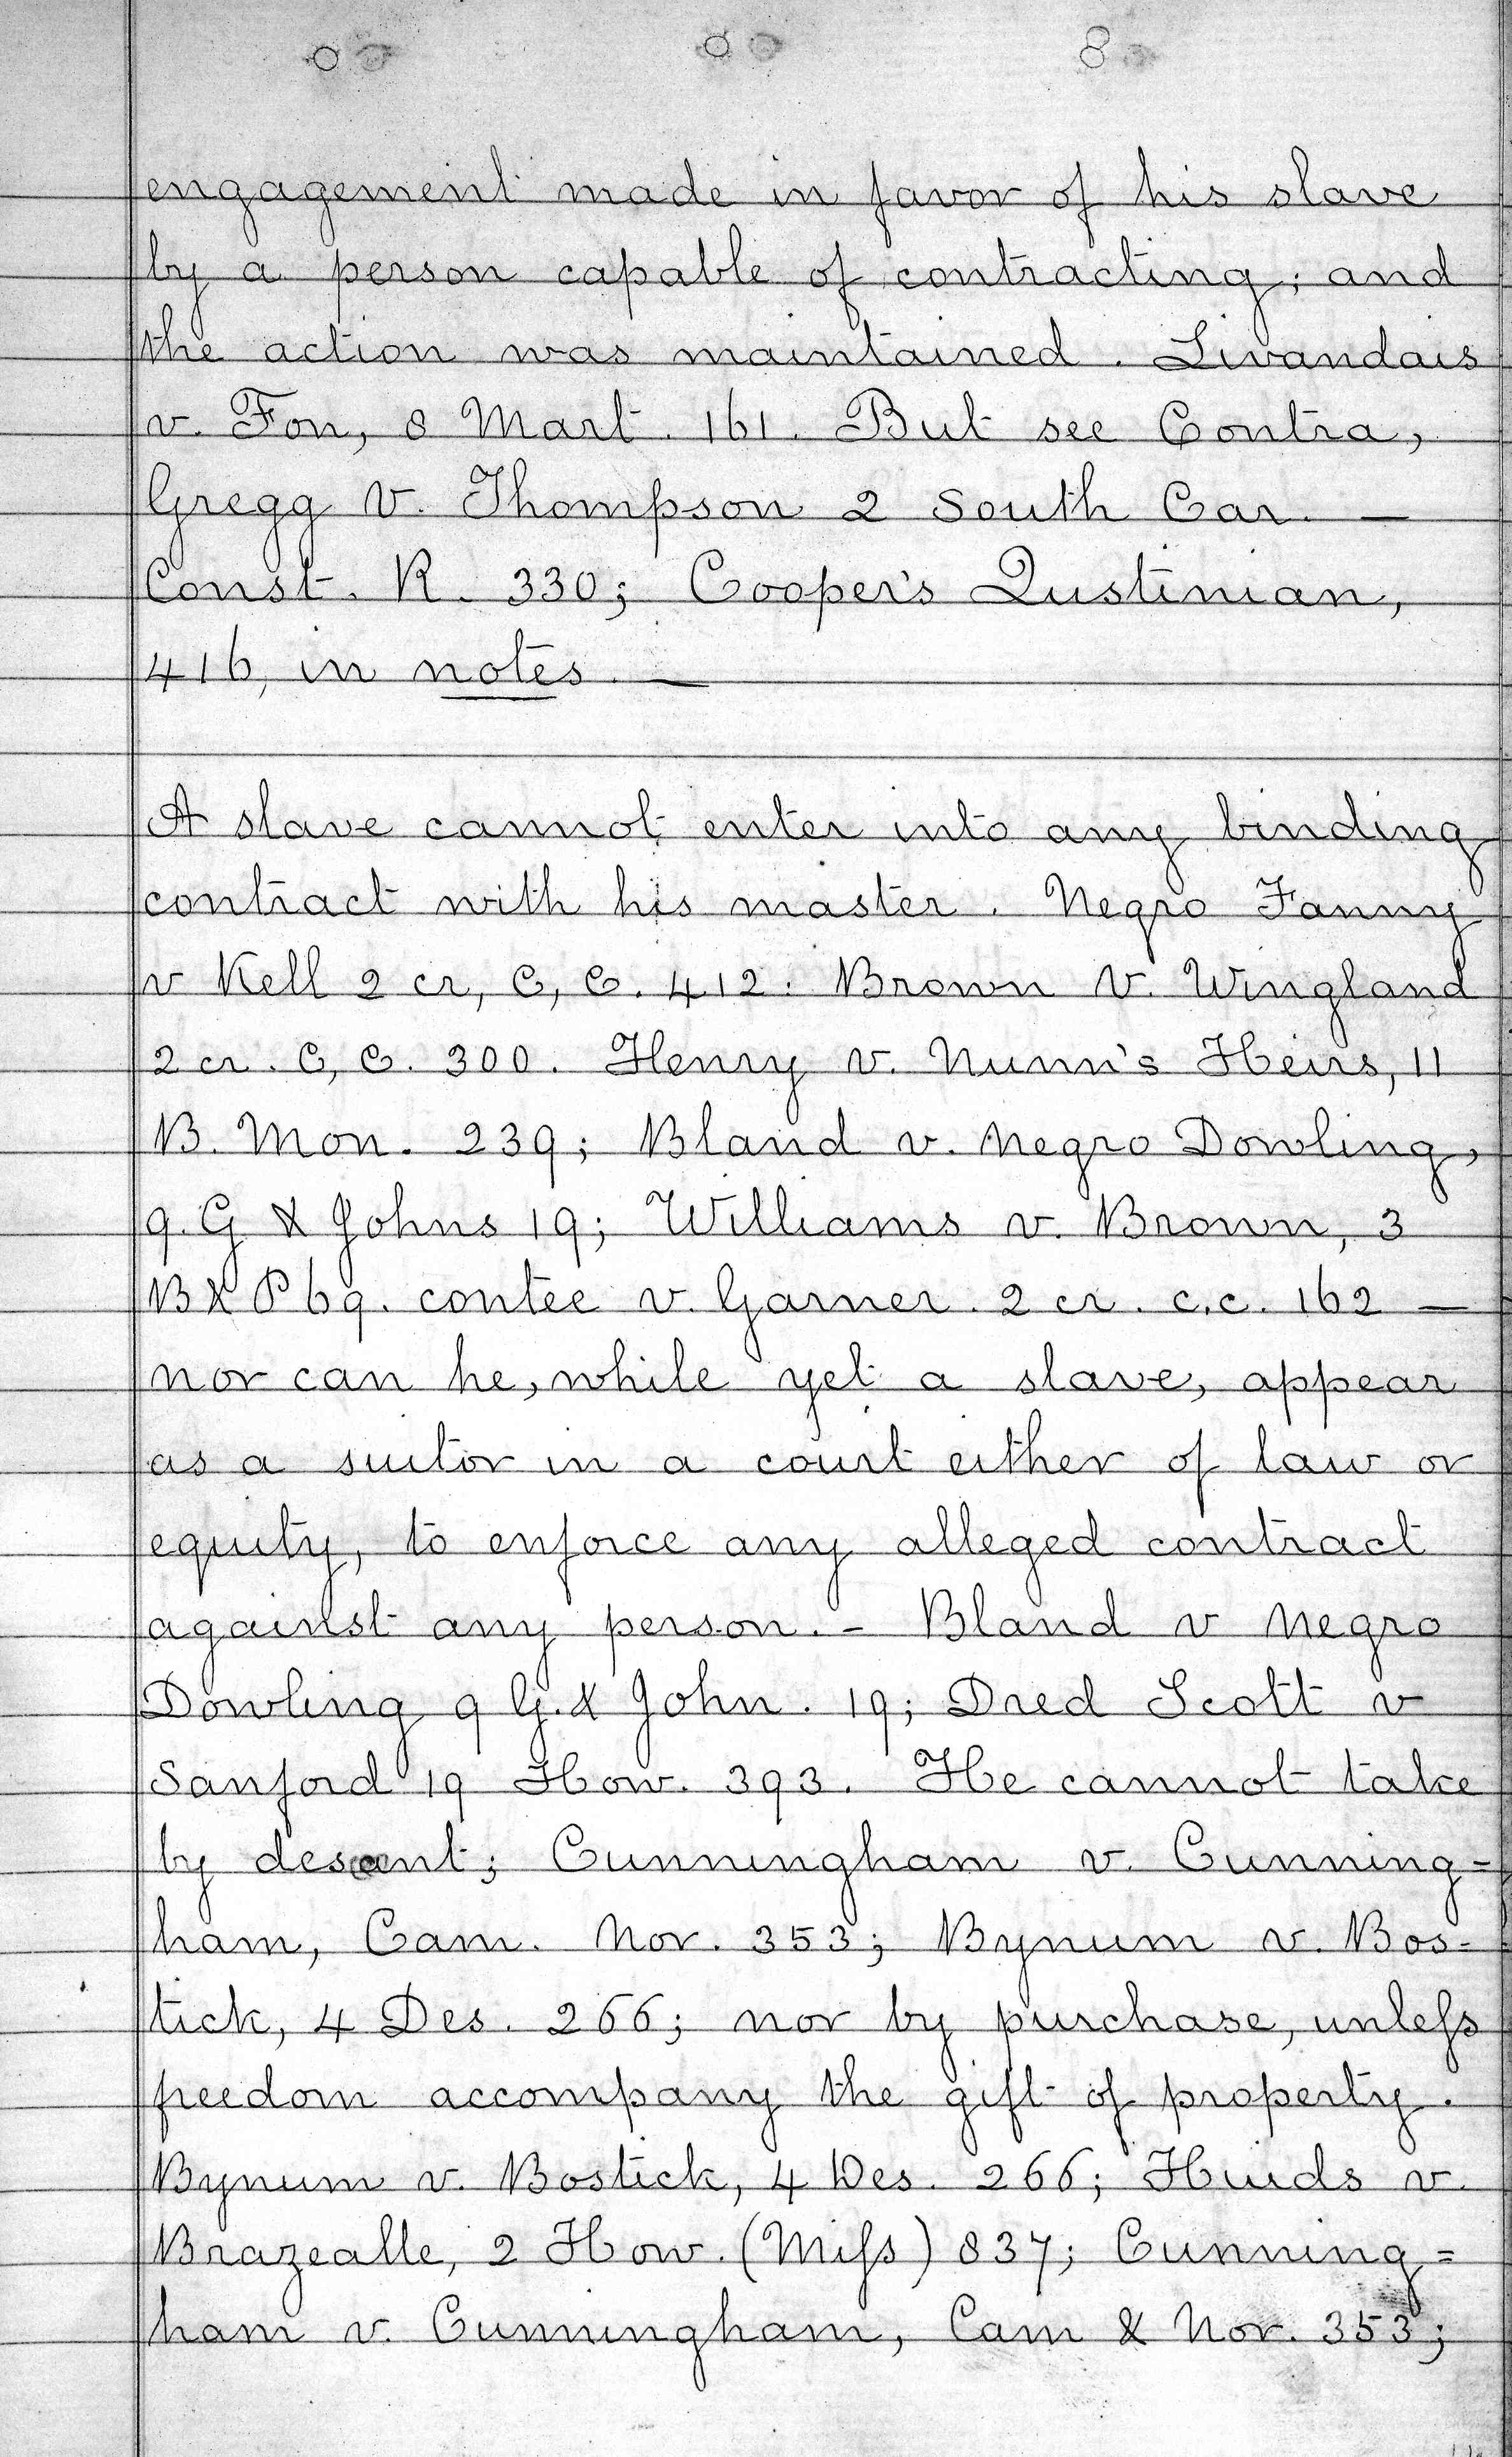 0 0 8
engagement made in favor of his slave
by a person capable of contracting; and
the action was maintained. Livandais
v. Fon, 8 Mart. 161. But see Contra,
Gregg v. Thompson 2 South Car. —
Const. R. 330; Cooper's Justinian,
416, in notes. —
A slave cannot enter into any binding
contract with his master. Negro Fanny
v Kell 2 cr, C, C. 412. Brown v. Wingland
2 cr. C, C. 300. Henry v. Nunn's Heirs, 11
B. Mon. 239; Bland v. Negro Dowling,
9. G & Johns 19; Williams v. Brown, 3
B & P 69. contee v. Garner. 2 cr. c.c. 162 —
nor can he, while yet a slave, appear
as a suitor in a court either of law or
equity, to enforce any alleged contract
against any person. - Bland v Negro
Dowling 9 G. & John. 19; Dred Scott v
Sanford 19 How. 393. He cannot take
by descent; Cunningham v. Cunning=
ham, Cam. Nor. 353; Bynum v. Bos=
tick, 4 Des. 266; nor by purchase, unless
freedom accompany the gift of property.
Bynum v. Bostick, 4 Des. 266; Huids v.
Brazealle, 2 How. (Miss) 837; Cunning=
ham v. Cunningham, Cam & Nor. 353;